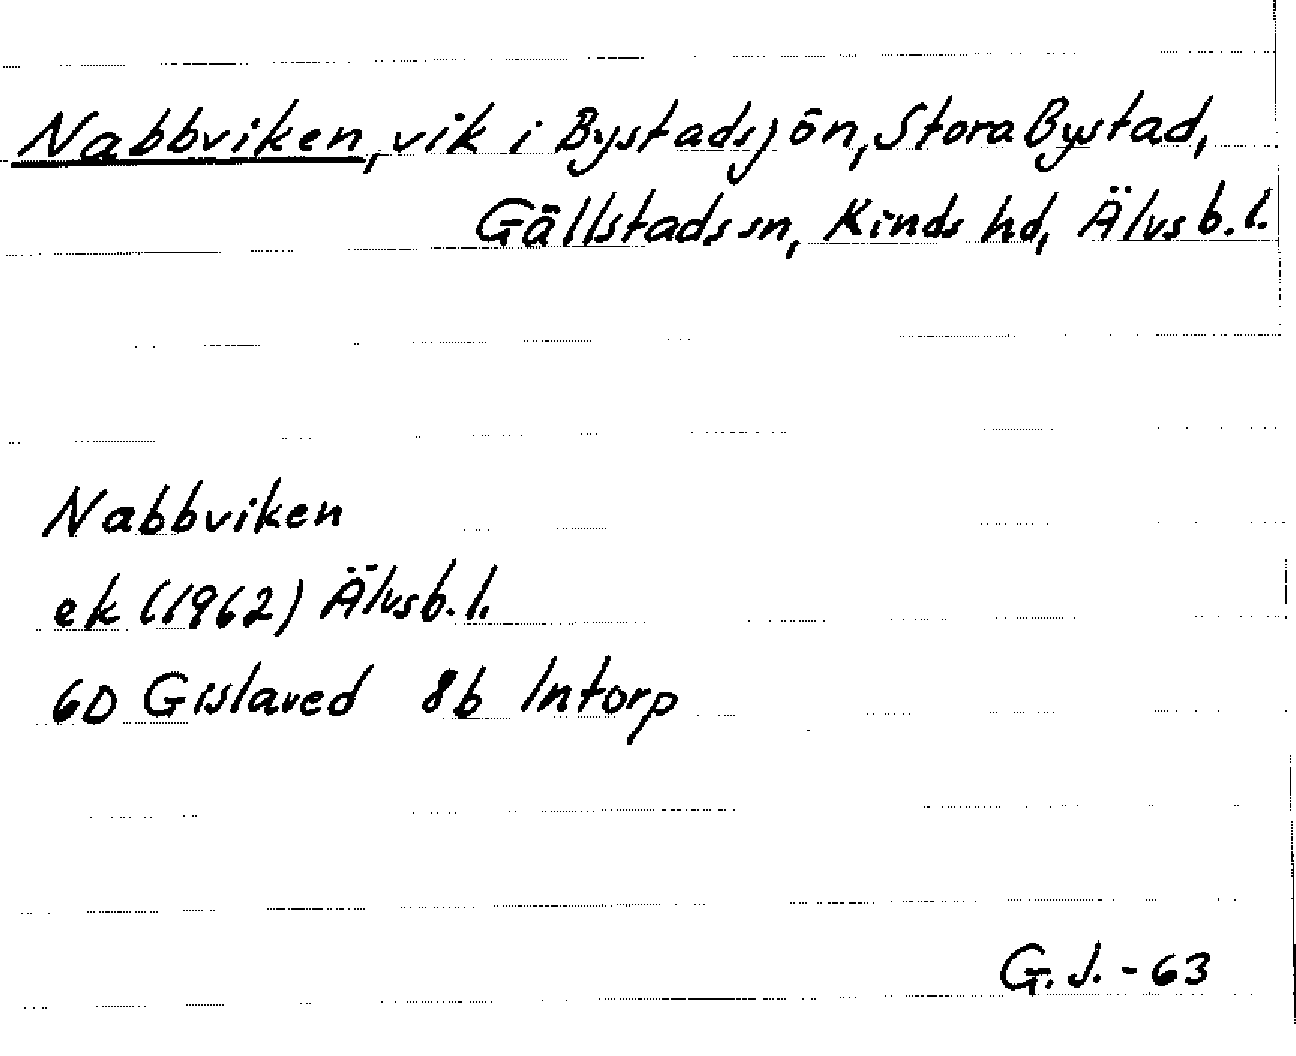 Nabbviken, vik i Bystadsjön, Stora Bystad,
Gällstads sn, Kinds hd, Älvsb. l.
Nabbviken
ek (1962) Älvsb. l.
6D Gislaved 8b Intorp
G. J. - 63